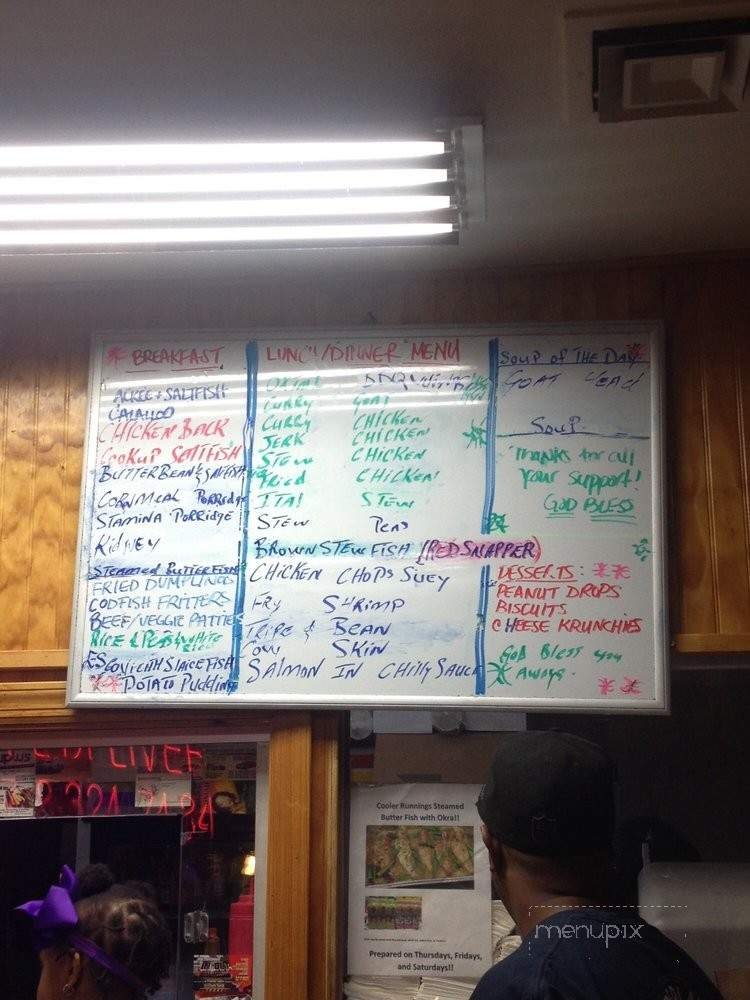 * BREAKFAST
ACKEE + SALTFISH
CALALOO
CHICKEN BACK
COOKUP SALTFISH
BUTTERBEAN & SALTFISH
CORNMEAL PORRIDGE
STAMINA PORRIDGE
KIDNEY
STEAMED BUTTERFISH
FRIED DUMPLINGS
CODFISH FRITTERS
BEEF/VEGGIE PATTIES
RICE & PEAS WHITE RICE
ESCOVICTH SLICE FISH
** POTATO PUDDING
LUNCH/DINNER MENU
OXTAIL
CURRY GOAT
CURRY CHICKEN
JERK CHICKEN
STEW CHICKEN
FRIED CHICKEN
ITAL STEW
STEW PEAS
BROWN STEW FISH (RED SNAPPER)
CHICKEN CHOPS SUEY
FRY SHRIMP
TRIPE & BEAN
COW SKIN
SALMON IN CHILLY SAUCE
SOUP OF THE DAY *
GOAT HEAD
SOUP
Thanks for all
your support!
GOD BLESS
DESSERTS: **
PEANUT DROPS
BISCUITS
CHEESE KRUNCHIES
God Bless you
* Always.
**
Cooler Runnings Steamed
Butter Fish with Okra!!
Prepared on Thursdays, Fridays,
and Saturdays!!
menupix